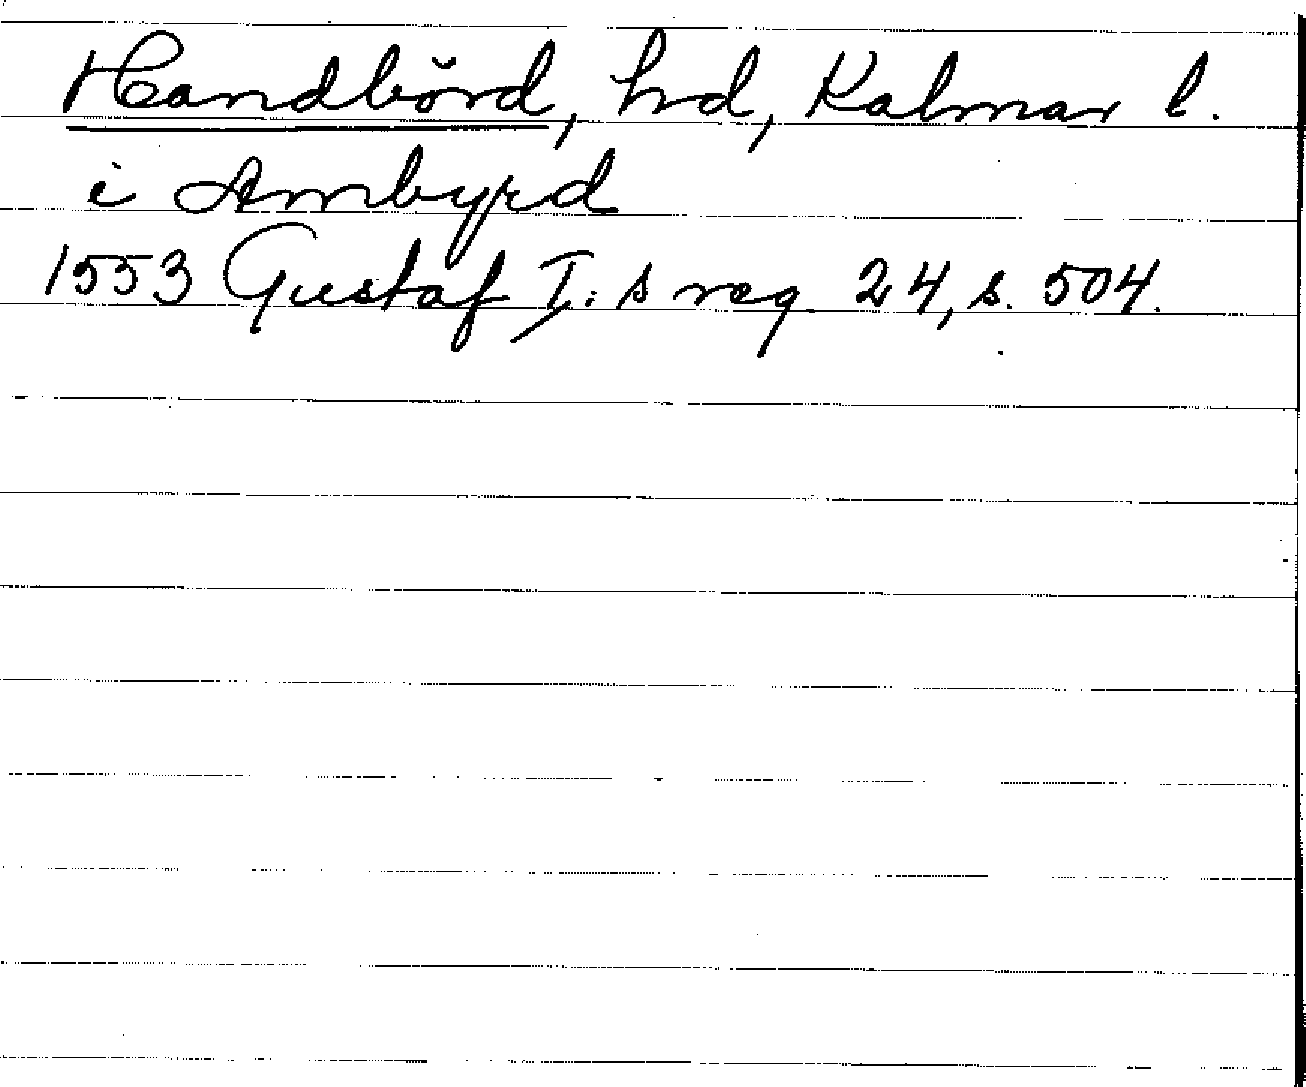 Handbörd, hd, Kalmar l.
i Ambyrd
1553 Gustaf I:s reg 24, s. 504.